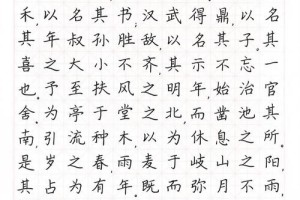 禾,以名其书;汉武得鼎,以名
其年;叔孙胜敌,以名其子。其
喜之大小不齐,其示不忘一
也。予至扶风之明年,始治官
舍。为亭于堂之北,而凿池其
南,引流种木,以为休息之所。
是岁之春,雨麦于岐山之阳,
其占为有年。既而弥月不雨,